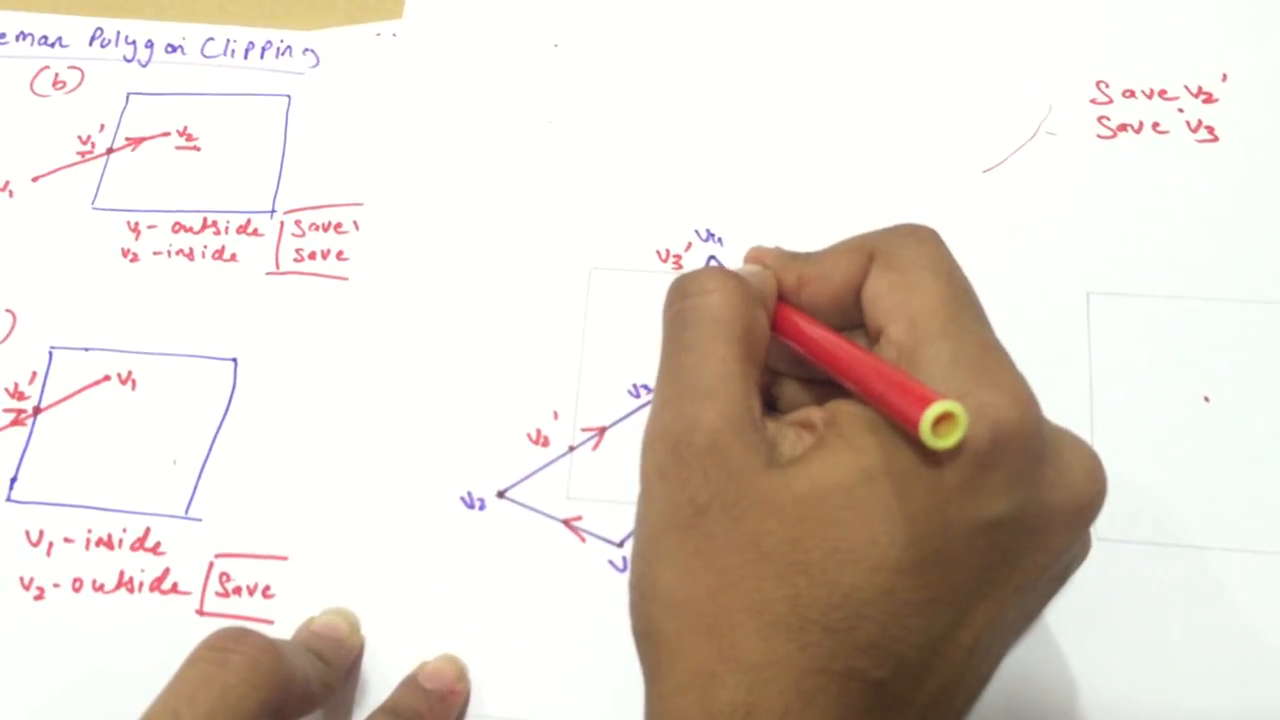 Polygon Clipping
(b)
v1' v2
v1
v1 - outside save'
v2 - inside save
)
v1
v2'
v1 - inside
v2 - outside save
Save v2'
Save v3
v4
v3'
v3
v2'
v2
v